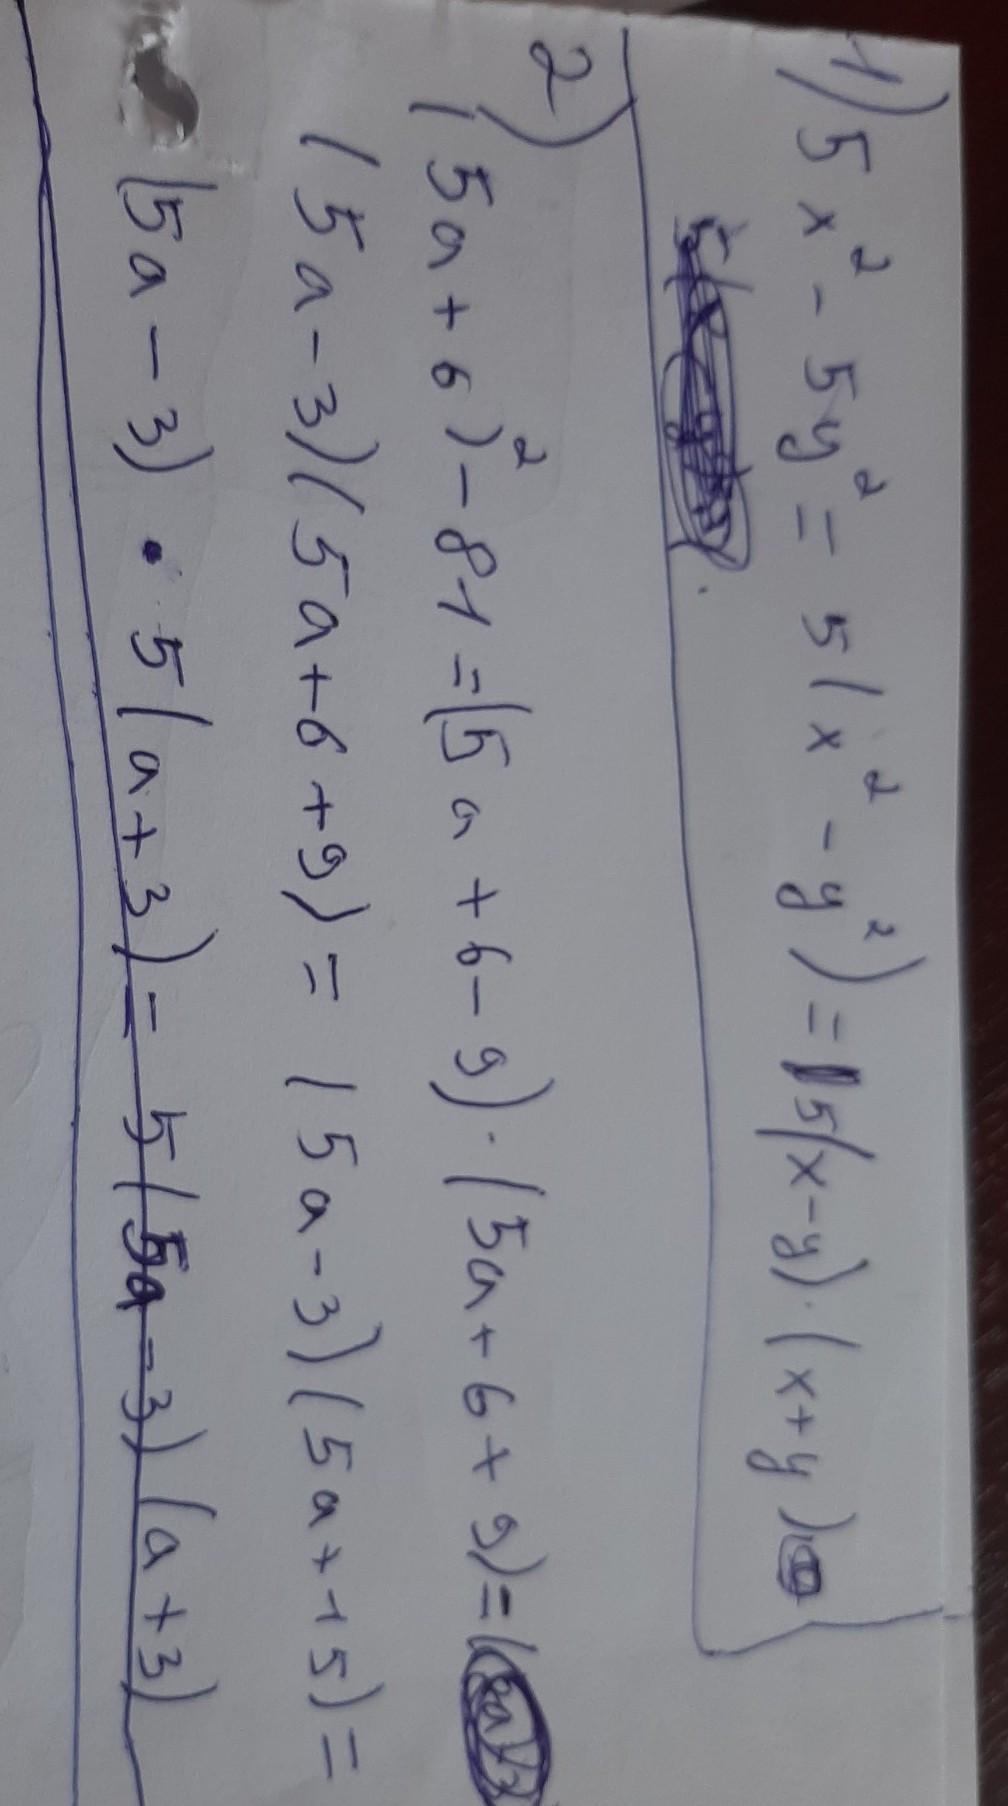 1) 5x² - 5y² = 5(x² - y²) = 5(x-y)·(x+y)
2)
(5a+6)² - 81 = (5a+6-9)·(5a+6+9) = (
(5a-3)(5a+6+9) = (5a-3)(5a+15) =
(5a-3)·5(a+3) = 5(5a-3)(a+3)